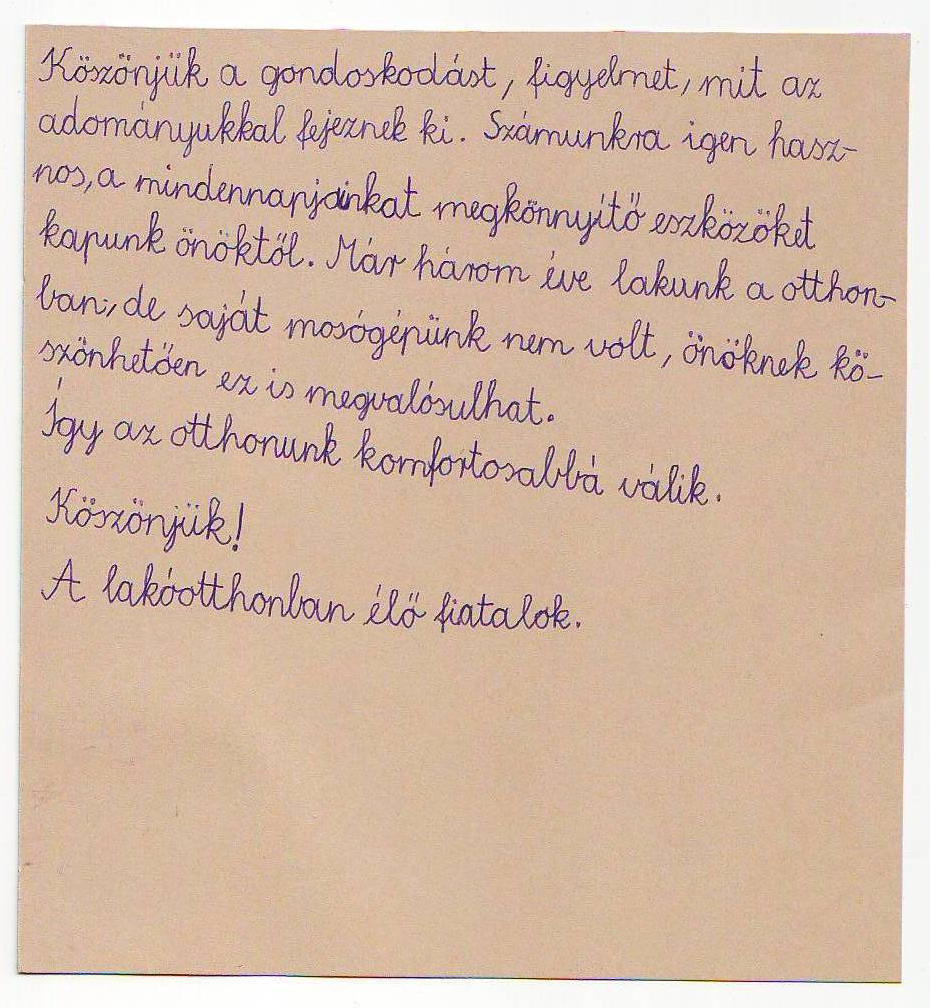 Köszönjük a gondoskodást, figyelmet, mit az
adományukkal fejeznek ki. Számunkra igen hasz-
nos, a mindennapjainkat megkönnyítő eszközöket
kapunk önöktől. Már három éve lakunk a otthon-
ban, de saját mosógépünk nem volt, önöknek kö-
szönhetően ez is megvalósulhat.
Így az otthonunk komfortosabbá válik.
Köszönjük!
A lakóotthonban élő fiatalok.